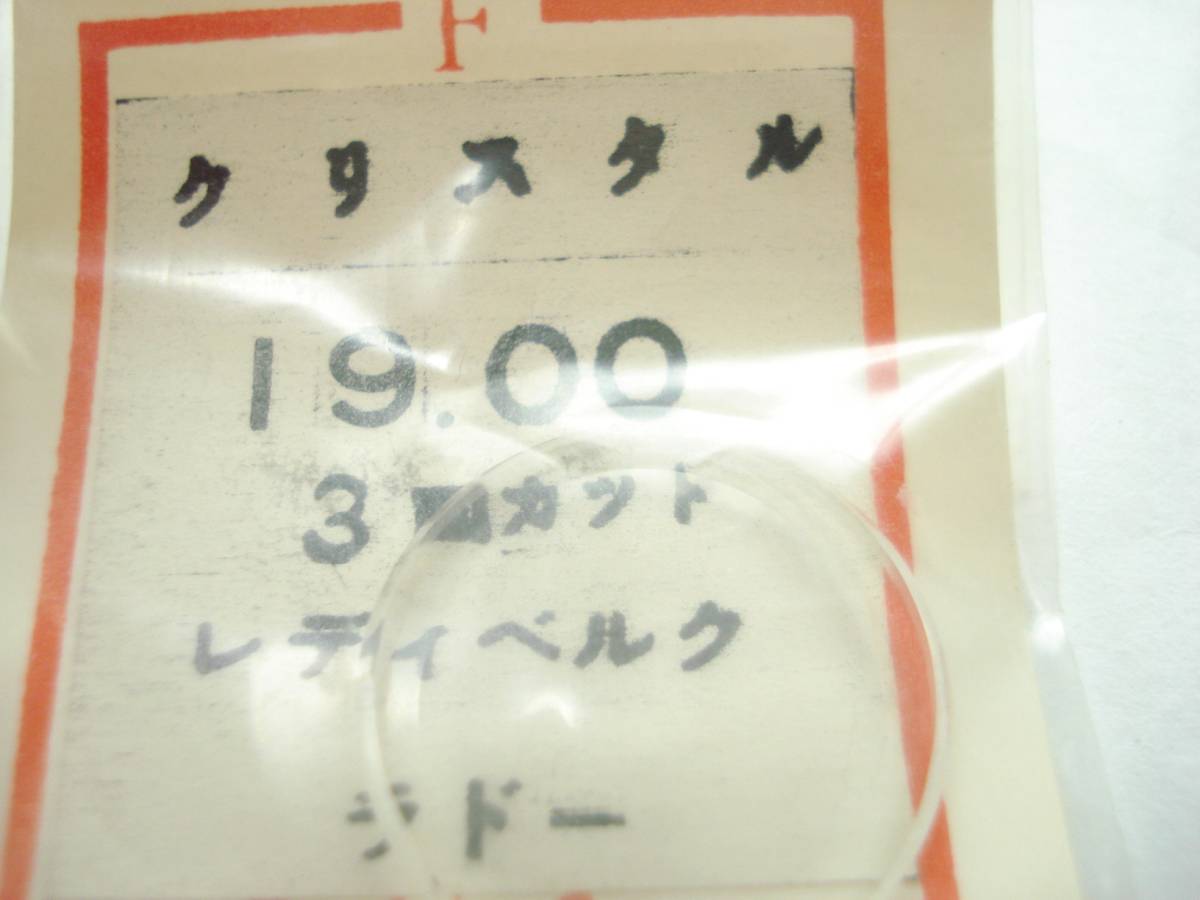 F
クリスタル
19.00
3面カット
レディベルク
ラドー